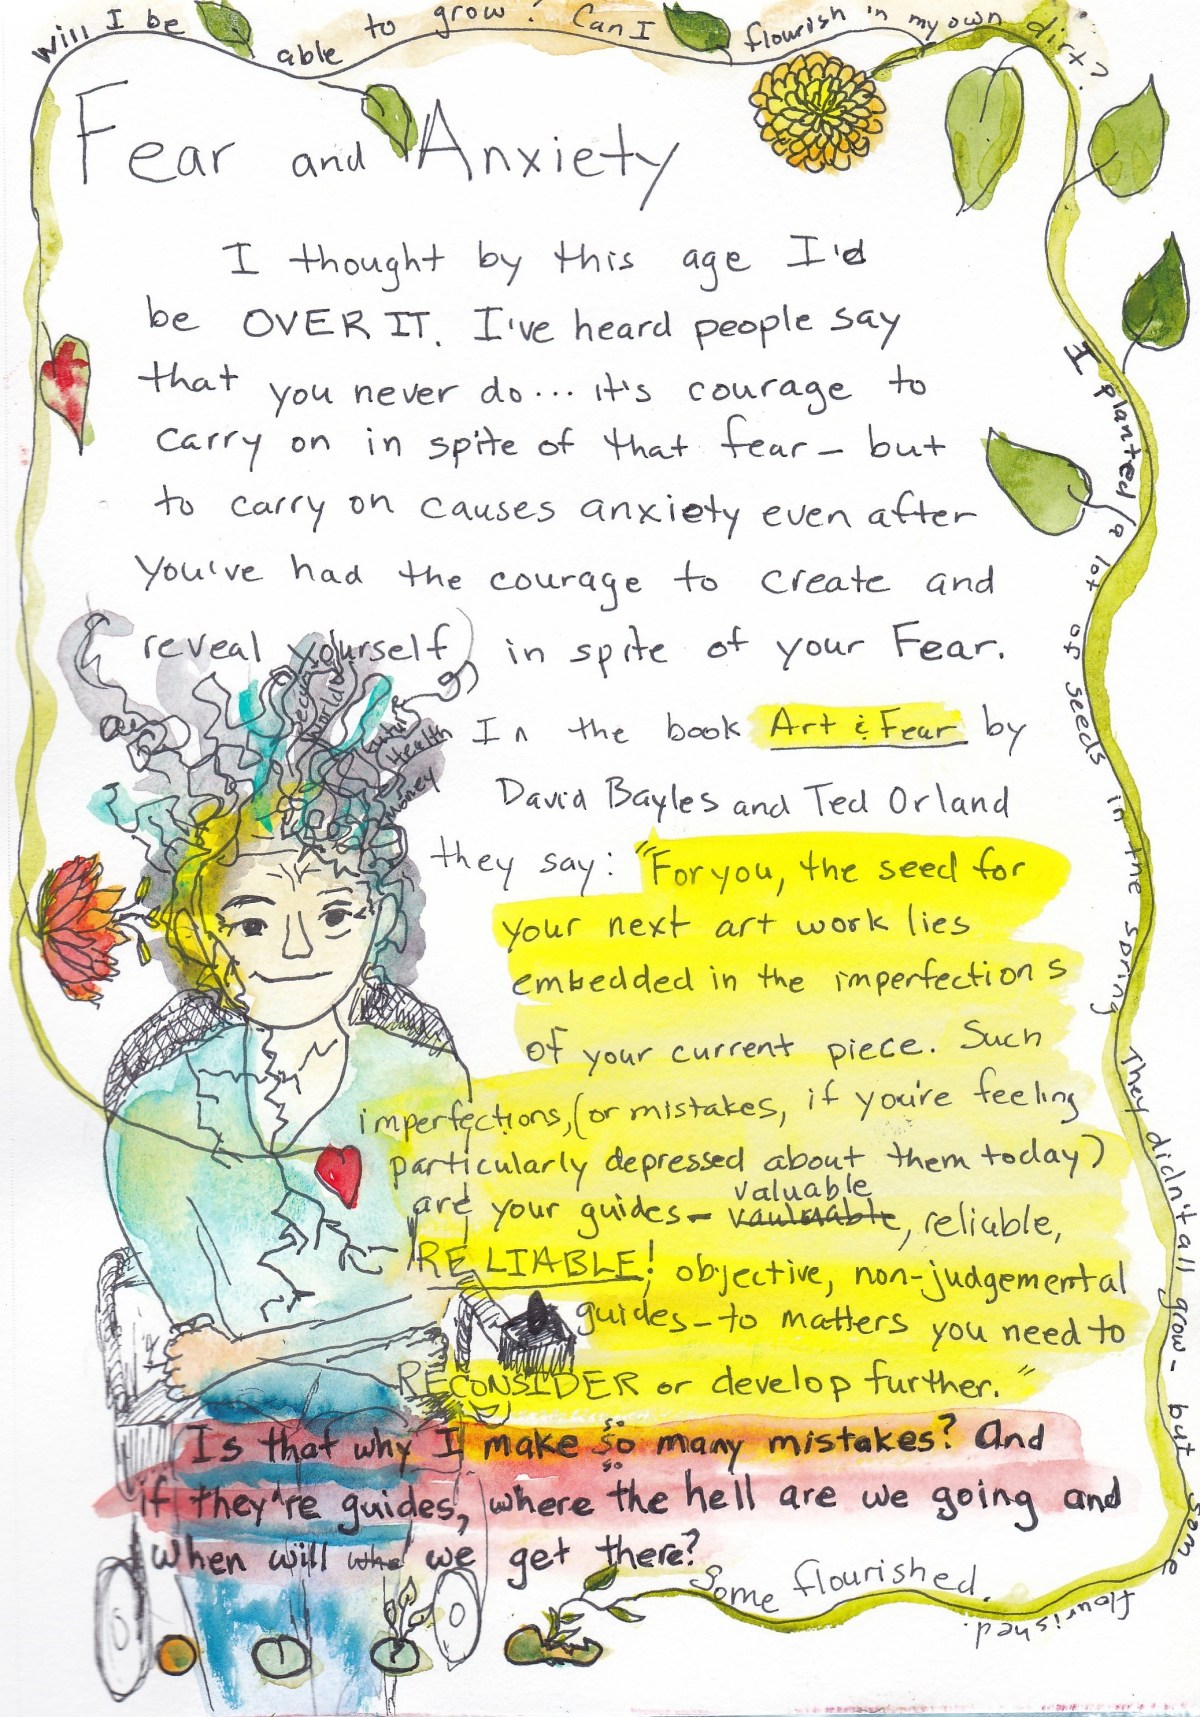 will I be able to grow? Can I flourish in my own dirt?
Fear and Anxiety
I thought by this age I'd
be OVER IT. I've heard people say
that you never do... it's courage to
carry on in spite of that fear – but
to carry on causes anxiety even after
You've had the courage to create and
reveal yourself) in spite of your Fear.
In the book Art & Fear by
David Bayles and Ted Orland
they say: "For you, the seed for
your next art work lies
embedded in the imperfections
of your current piece. Such
imperfections, (or mistakes, if you're feeling
particularly depressed about them today)
valuable
are your guides – , reliable,
RELIABLE! objective, non-judgemental
guides – to matters you need to
RECONSIDER or develop further."
so
Is that why I make so many mistakes? And
so
if they're guides, where the hell are we going and
when will we get there?
Some flourished.
I planted a lot of seeds in the spring
They didn't all grow – but some flourished.
World
future
Health
money